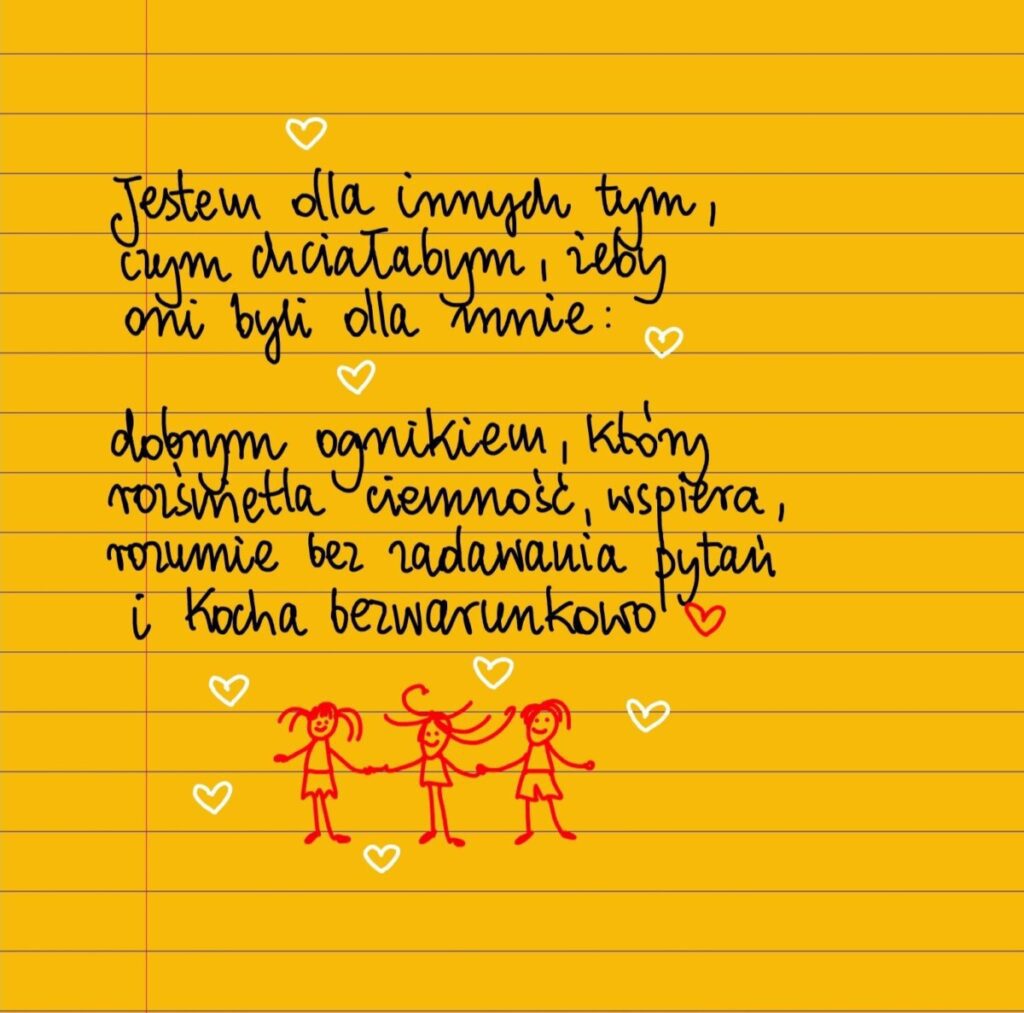 Jestem dla innych tym,
czym chciałabym, żeby
oni byli dla mnie:
dobrym ognikiem, który
rozświetla ciemność, wspiera,
rozumie bez zadawania pytań
i kocha bezwarunkowo